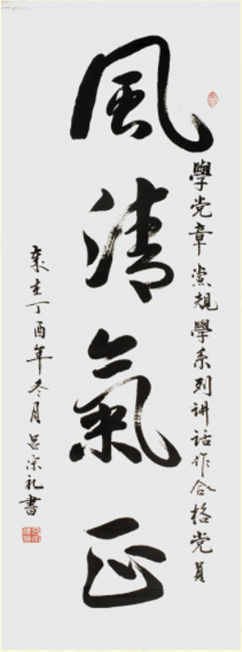 風清氣正
學党章黨規學系列讲話作合格党員
歲在丁酉年冬月吕宗礼書